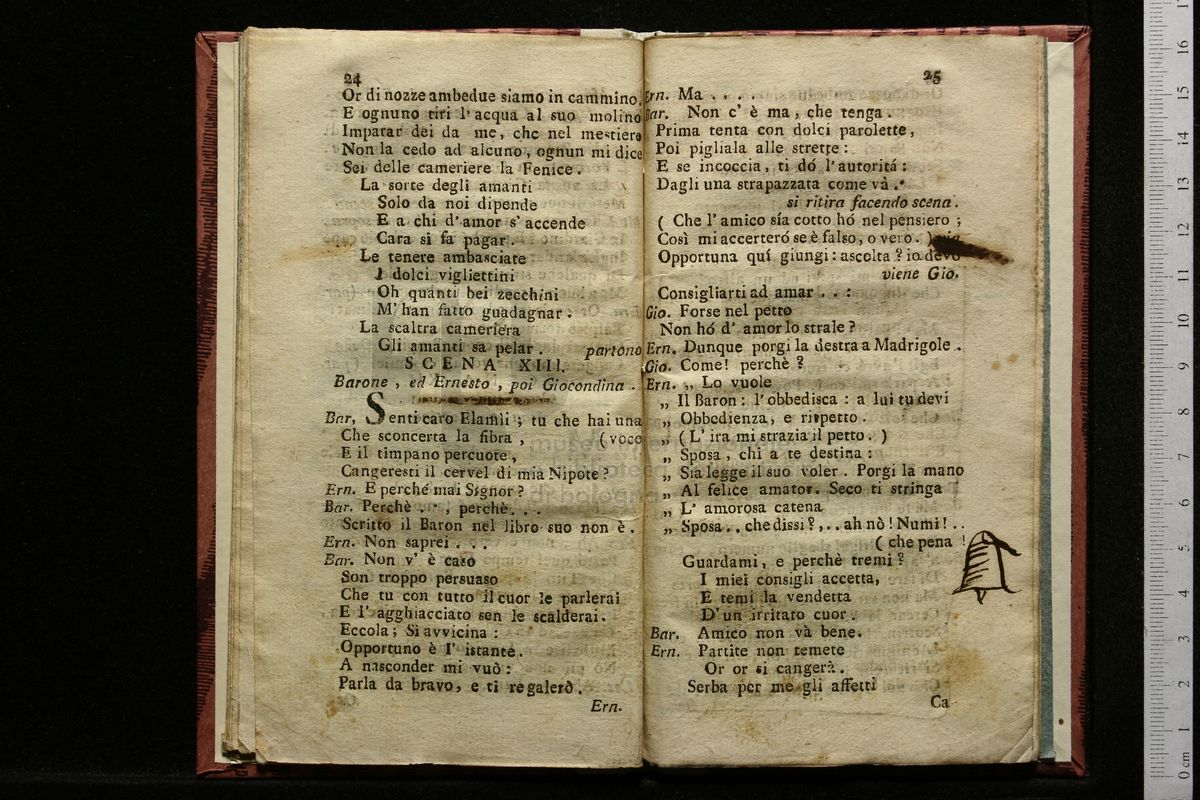 24
Or di nozze ambedue siamo in cammino,
E ognuno tiri l'acqua al suo molino
Imparar dei da me, che nel mestiero
Non la cedo ad alcuno, ognun mi dice
Sei delle cameriere la Fenice.
La sorte degli amanti
Solo da noi dipende
E a chi d'amor s'accende
Cara si fa pagar.
Le tenere ambasciate
I dolci vigliettini
Oh quanti bei zecchini
M'han fatto guadagnar.
La scaltra cameriera
Gli amanti sa pelar. partono
SCENA XIII.
Barone, ed Ernesto, poi Giocondina.
Bar, Senti caro Elamìi; tu che hai una
Che sconcerta la fibra, (voce
E il timpano percuote,
Cangeresti il cervel di mia Nipote?
Ern. E perché mai Signor?
Bar. Perchè . . , perchè. . .
Scritto il Baron nel libro suo non è.
Ern. Non saprei . . .
Bar. Non v' è caso
Son troppo persuaso
Che tu con tutto il cuor le parlerai
E l' agghiacciato sen le scalderai.
Eccola; Si avvicina:
Opportuno è l' istante.
A nasconder mi vuò:
Parla da bravo, e ti regalerò.
Ern.
25
Ern. Ma . . . .
Bar. Non c' è ma, che tenga.
Prima tenta con dolci parolette,
Poi pigliala alle strette:
E se incoccia, ti dó l'autoritá:
Dagli una strapazzata come và.
si ritira facendo scena.
( Che l'amico sía cotto hó nel pensiero;
Così mi accerteró se è falso, o vero. )
Opportuna quí giungi: ascolta? io devo
viene Gio.
Consigliarti ad amar . . :
Gio. Forse nel petto
Non hó d' amor lo strale?
Ern. Dunque porgi la destra a Madrigole.
Gio. Come! perchè?
Ern. „ Lo vuole
„ Il Baron: l'obbedisca: a lui tu devi
„ Obbedienza, e rispetto.
„ ( L' ira mi strazia il petto. )
„ Sposa, chi a te destina:
„ Sia legge il suo voler. Porgi la mano
„ Al felice amator. Seco ti stringa
„ L' amorosa catena
„ Sposa . . che dissi?, . . ah nò! Numi! . .
( che pena !
Guardami, e perchè tremi?
I miei consigli accetta,
E temi la vendetta
D'un irritato cuor.
Bar. Amico non và bene.
Ern. Partite non temete
Or or si cangerà.
Serba per me gli affetti
Ca